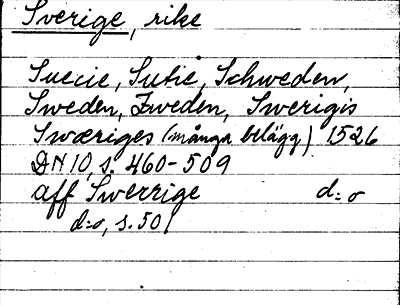 Sverige, rike
Suecie, Sutie, Schweden,
Sweden, Zweden, Swerigis
Swæriges (många belägg) 1526
DN 10, s. 460-509
aff Swerrige d:o
d:o, s. 501